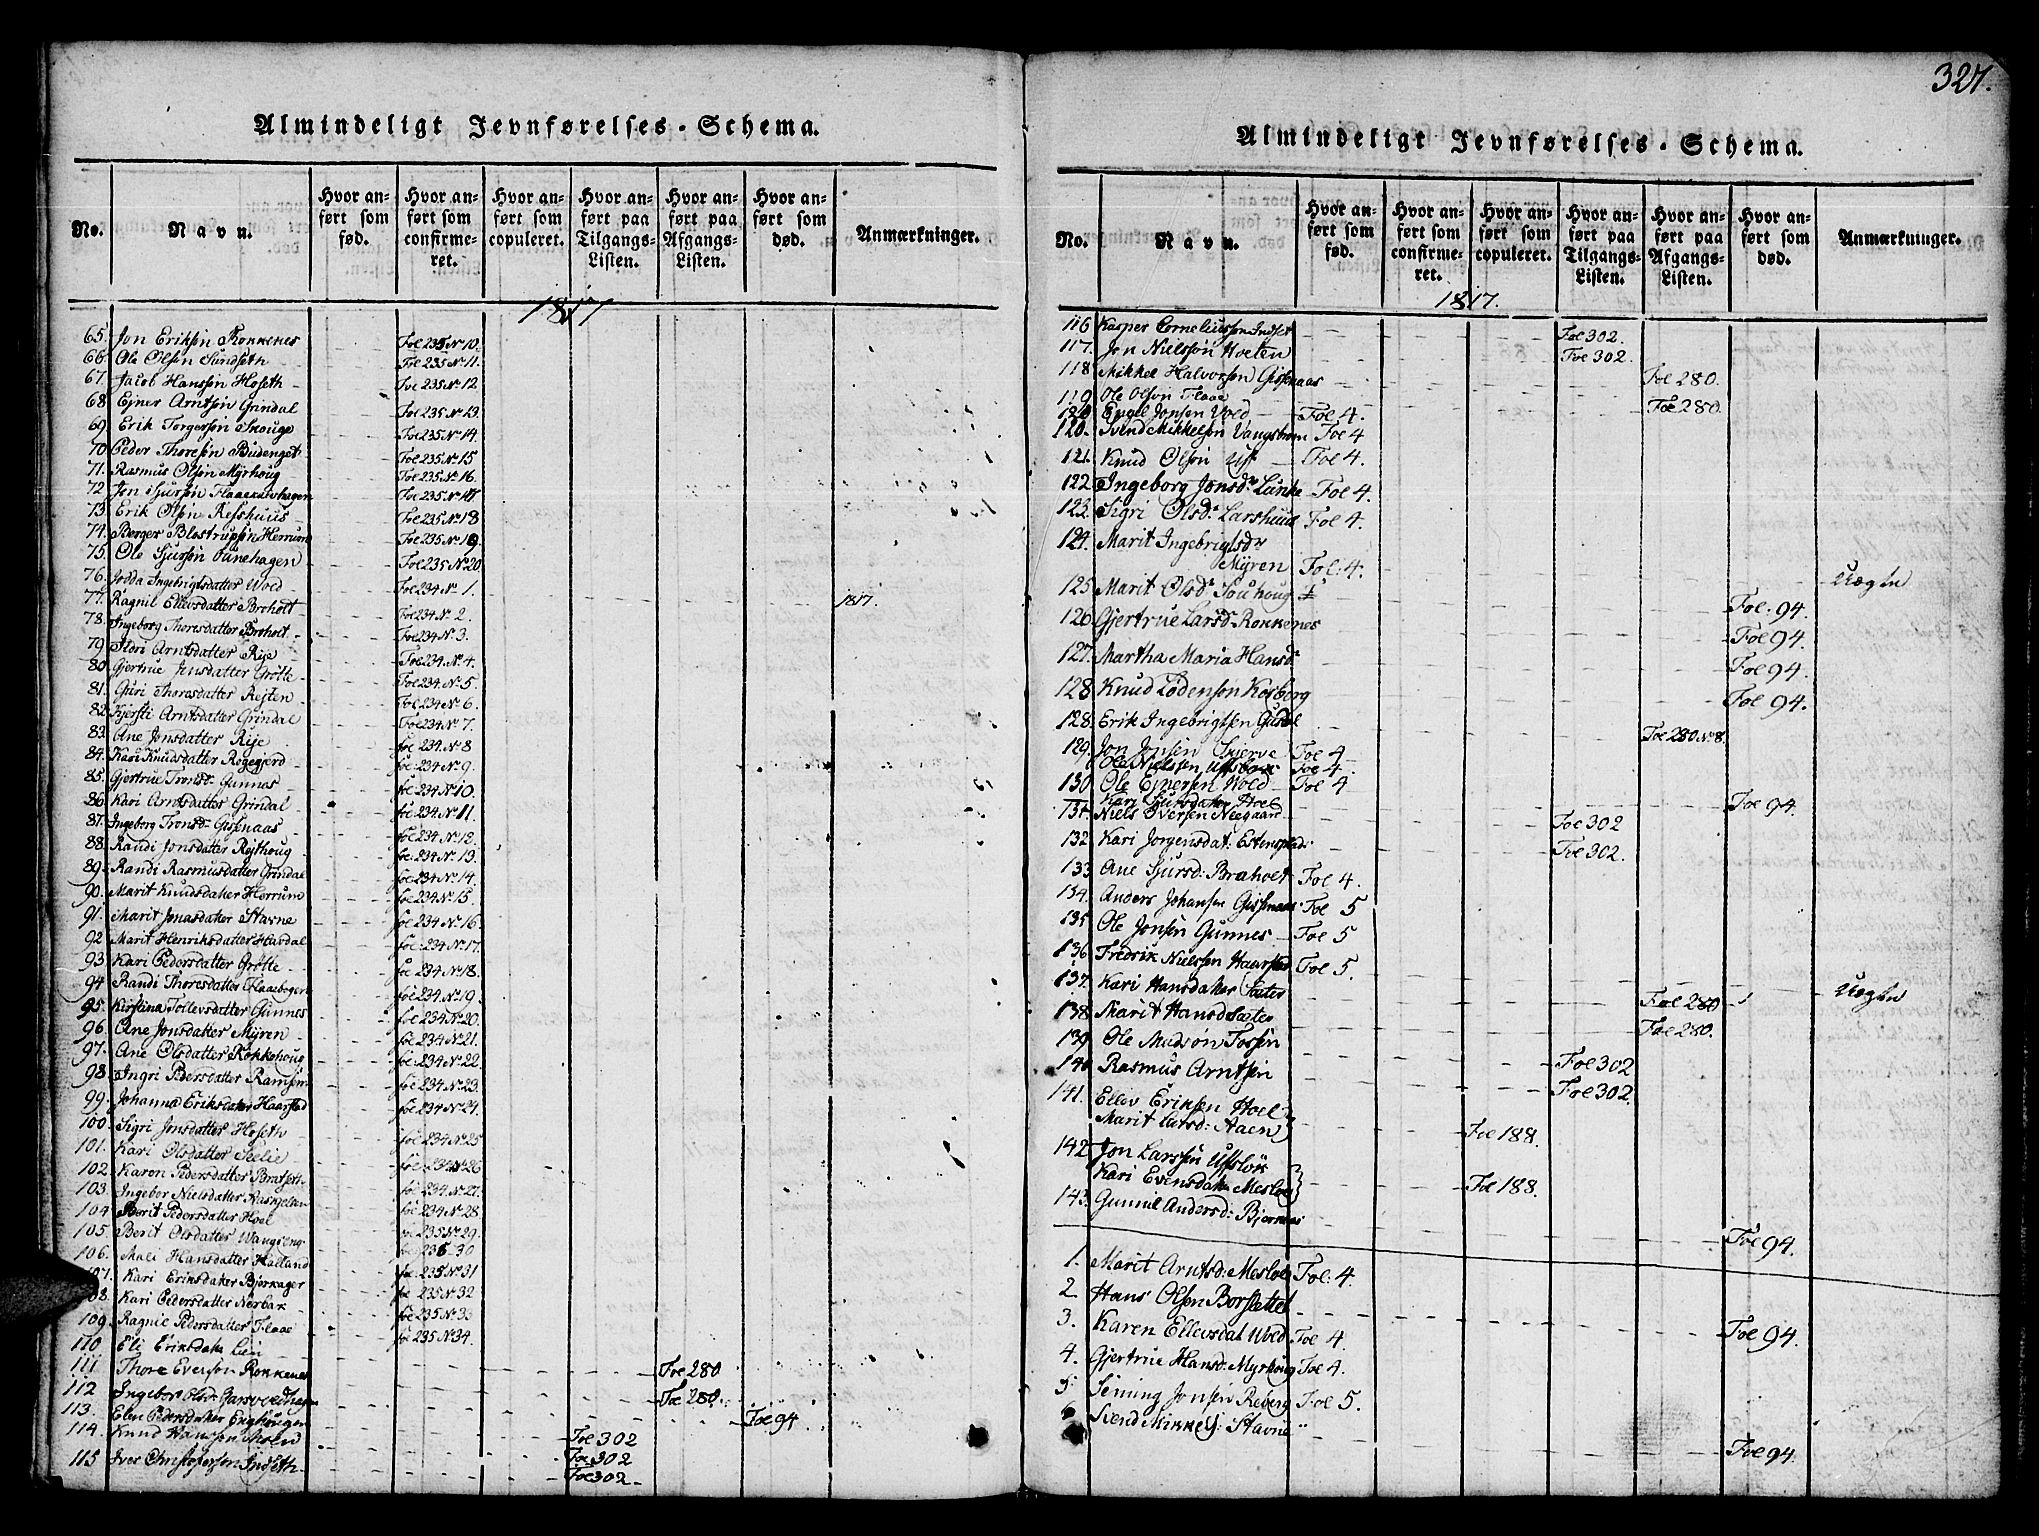 327.
Almindeligt Jevnførelses-Schema.
No. | Navn. | Hvor anført som fød. | Hvor anført som confirmeret. | Hvor anført som copuleret. | Hvor anført paa Tilgangs-Listen. | Hvor anført paa Afgangs-Listen. | Hvor anført som død. | Anmærkninger.
1817
65. Jon Eriksøn Rokkenes Foe 235 No 10.
66. Ole Olsøn Sundseth Foe 235 No 11.
67. Jacob Hanssøn Hoseth Foe 235 No 12
68 Ejner Arntsøn Grindal Foe 235 No 13.
69. Erik Torgersøn Foe 235 No 14.
70 Peder Thoresøn Budenget Foe 235 No 15
71. Rasmus Olsøn Myrhoug Foe 235 No 16.
72 Jon Sjursøn Foe 235 No 17
73. Erik Olsøn Resshuus Foe 235 No 18
74. Berger Blostrupsøn Herrum Foe 235 No 19
75. Ole Sjursøn Foe 235 No 20
76. Jodda Ingebrigtsdatter Wold Foe 234 No 1.
77. Ragnil Ellevsdatter Broholt Foe 234 No 2. 1817.
78. Ingeborg Thoresdatter Broholt Foe 234 No 3.
79. Arntsdatter Rije Foe 234 No 4.
80. Gjertrue Jensdatter Grøtte Foe 234 No 5.
81. Guri Thoresdatter Foe 234 No 6.
82. Kjersti Arntsdatter Grindal Foe 234 No 7.
83. Ane Jonsdatter Rije foe 234 No 8
84. Kari Knudsdatter Rogegjerd foe 234 No 9.
85. Gjertrue Gunnes foe 234 No 10.
86. Kari Arntsdatter Grindal foe 234 No 11.
87. Ingeborg Gissenaas foe 234 No 12.
88. Randi Jonsdatter Rejthoug foe 234 No 13.
89. Randi Rasmusdatter Grindal foe 234 No 14.
90. Marit Knudsdatter Herrum foe 234 No 15.
91. Marit Jonasdatter Stavne foe 234 No 16.
92 Marit Henriksdatter Havdal foe 234 No 17.
93 Kari Pedersdatter Grøtte foe 234 No 18.
94 Randi Thoresdatter foe 234 No 19.
95. Kirstina Tollevsdatter Gunnes foe 234 No 20.
96 Ane Jonsdatter Myren foe 234 No 21.
97. Ane Olsdatter Rokkehoug foe 234 No 22.
98. Ingri Pedersdatter foe 234 No 23.
99. Johanna Eriksdatter Haarstad foe 234 No 24.
100. Sigri Jonsdatter Hoseth foe 234 No 25
101. Kari Olsdatter foe 234 No 26
102. Karen Pedersdatter Bratseth foe 234 No 27.
103. Ingebor Nielsdatter foe 234 No 28
104 Berit Pedersdatter Hoel 235 No 29.
105. Berit Olsdatter Wangseng 235 30
106. Mali Hansdatter Halland foe 235 No 31
107. Kari Eriksdatter Bjerkager foe 235 No 32
108. Kari Pedersdatter Norbak foe 235 No 33
109 Ragnil Pedersdatter Flaae foe 235 No 34.
110. Eli Eriksdatter Lien
111. Thore Eversen Rokkenes Foe 280
112 Ingebor Olsdr. Foe 280.
113. Elen Pedersdatter Enghougen Foe 94
114. Knud Hanssøn Foe 302
115 Iver Christofersøn Indseth Foe 302
Foe 302
Almindeligt Jevnførelses-Schema.
No. | Navn. | Hvor anført som fød. | Hvor anført som confirmeret. | Hvor anført som copuleret. | Hvor anført paa Tilgangs-Listen. | Hvor anført paa Afgangs-Listen. | Hvor anført som død. | Anmærkninger.
1817.
116 Kasper Corneliussøn Indset Foe 302.
117. Jon Nielssøn Hoeten Foe 302
118 Mikkel Halvorsøn Gissenaas Foe 280.
119 Ole Olsøn Flaae Foe 280.
120 Engel Jonsen Vold Foe 4.
120. Svend Mikkelsøn Vangstrøm Foe 4
121. Knud Olsøn Uf Foe 4.
122 Ingeborg Jonsdr. Lunke Foe 4.
123. Sigri Olsdr. Larshuus Foe 4.
124. Marit Ingebrigtsdr.
Myren Foe: 4.
125. Marit Olsdr. Uægte
126 Gjertrue Larsdr. Rokkenes Foe: 94.
127. Martha Maria Hansdr. Foe 94.
128 Knud Lodensøn Kosberg Foe 94
128. Erik Ingebrigtsen Foe 94.
129. Jon Jonsen Skjerve Foe 4 Foe 280 No 8.
Ole Nielssen Foe 4.
130 Ole Ejnersen Wold Foe 4
Kari Sjursdatter Hoel Foe 94.
131. Niels Iversen Neegaard Foe 302
132. Kari Jorgensdat: Estenstad Foe 302.
133. Ane Sjursd: Braholt Foe 4.
134. Anders Johansen Gissenaas Foe 5
135. Ole Jonsen Gunnes Foe 5
136 Fredrik Nielssen Haarstad Foe 5.
137. Kari Hansdatter Sæter Foe 280 Uægte
138. Marit Hansd Sæter Foe 280.
139. Ole Madsøn Fossen Foe 302
140. Rasmus Arntsen Foe 302.
141. Ellev Eriksen Hoel
Marit Larsd: Aaen } Foe 188.
142. Jon Larssen
Kari Evensdatter } Foe 188.
143. Gunnil Andersd: Bjørnaas Foe 94.
1. Marit Arntsd: Mesloe Foe: 4.
2. Hans Olsen Borslettet Foe 94.
3. Karen Ellevsdat Wold Foe 4.
4. Gjertrue Hansd: Myrhoug Foe 4.
5 Sening Jonsen Reberg Foe 5.
6 Svend Mikkels: Stavne Foe 94.